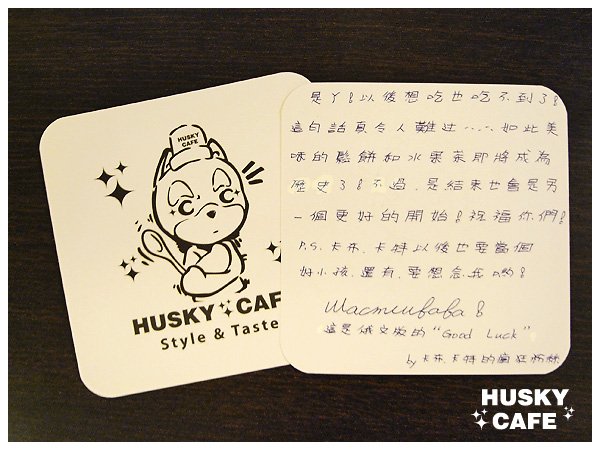 HUSKY
CAFE
HUSKY CAFE
Style & Taste
是丫!以後想吃也吃不到了!
這句話真令人難过……如此美
味的鬆餅和水果茶即將成為
歷史了!不過,是結束也會是另
一個更好的開始!祝福你們!
P.S. 卡布、卡特以後也要當個
好小孩,還有,要想念我喲!
Wacmeubafa!
這是俄文版的"Good Luck"
by 卡布、卡特的瘋狂粉絲
HUSKY
CAFE